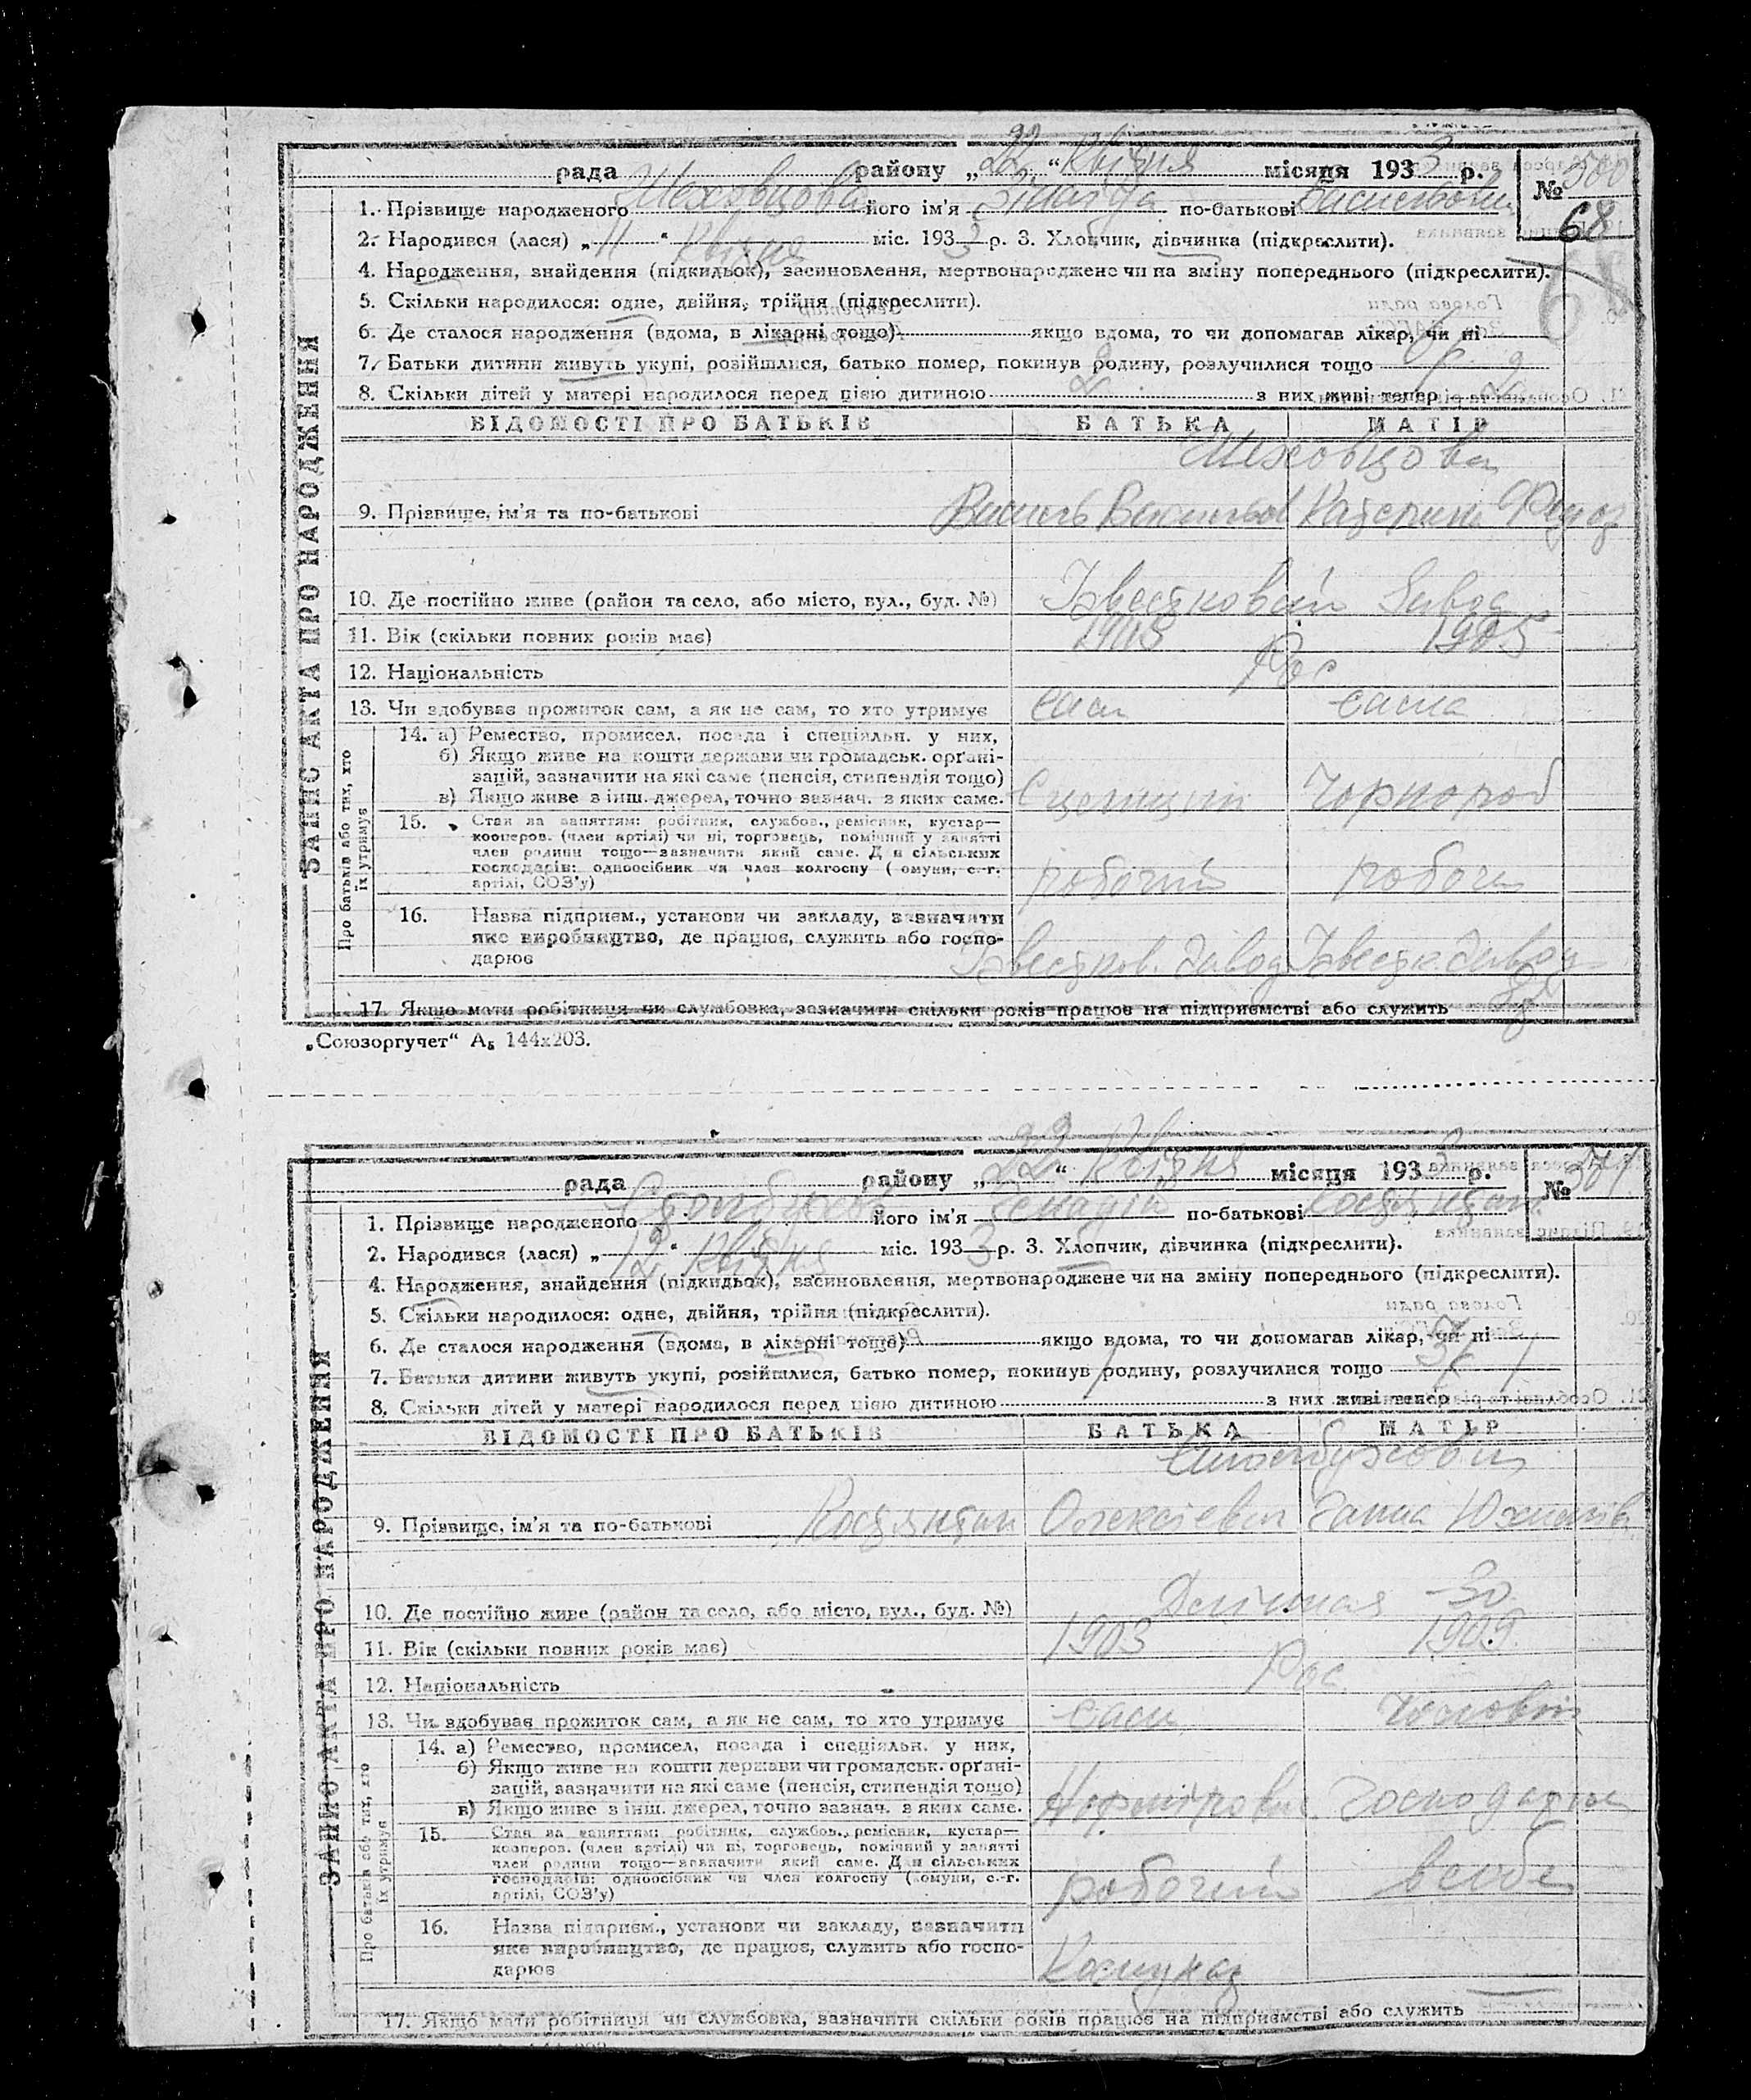 рада району „22“ Квітня місяця 1933 р. № 500
68
1. Прізвище народженого Шеховцова його ім'я Зінаїда по-батькові
2. Народився (лася) „11“ Квітня міс. 1933 р. 3. Хлопчик, дівчинка (підкреслити).
4. Народження, знайдення (підкидьок), засиновлення, мертвонароджене чи на зміну попереднього (підкреслити).
5. Скільки народилося: одне, двійня, трійня (підкреслити).
6. Де сталося народження (вдома, в лікарні тощо) якщо вдома, то чи допомагав лікар, чи ні
7. Батьки дитини живуть укупі, розійшлися, батько помер, покинув родину, розлучилися тощо
8. Скільки дітей у матері народилося перед цією дитиною 2 з них живі тепер 2
ЗАПИС АКТА ПРО НАРОДЖЕННЯ
ВІДОМОСТІ ПРО БАТЬКІВ БАТЬКА МАТІР
Шеховцова
9. Прізвище, ім'я та по-батькові Василь Васильов Катерина Федор
10. Де постійно живе (район та село, або місто, вул., буд. №) Ізвестковий Завод
11. Вік (скільки повних років має) 1905
12. Національність Рос
13. Чи здобуває прожиток сам, а як не сам, то хто утримує сам сама
Про батьків або тих, хто їх утримує
14. а) Ремество, промисел, посада і спеціяльн. у них,
б) Якщо живе на кошти держави чи громадськ. орґані-
зацій, зазначити на які саме (пенсія, стипендія тощо)
в) Якщо живе з інш. джерел, точно зазнач. з яких саме. Сцепщик Чорнороб
15. Стан за заняттям: робітник, службов., ремісник, кустар—
кооперов. (член артілі) чи ні, торговець, помічний у занятті
член родини тощо—зазначити який саме. Для сільських
господарів: одноосібник чи член колгоспу (комуни, с.-г.
артілі, СОЗ'у) робочий робоча
16. Назва підприєм., установи чи закладу, зазначити
яке виробництво, де працює, служить або госпо-
дарює Ізвестков. Завод Ізвестк. Завод
17. Якщо мати робітниця чи службовка, зазначити скільки років працює на підприємстві або служить
„Союзоргучет“ А₅ 144x203.
рада району „22“ Квітня місяця 1933 р. № 501
1. Прізвище народженого його ім'я Генадій по-батькові Костянтин.
2. Народився (лася) „12“ Квітня міс. 1933 р. 3. Хлопчик, дівчинка (підкреслити).
4. Народження, знайдення (підкидьок), засиновлення, мертвонароджене чи на зміну попереднього (підкреслити).
5. Скільки народилося: одне, двійня, трійня (підкреслити).
6. Де сталося народження (вдома, в лікарні тощо) якщо вдома, то чи допомагав лікар, чи ні
7. Батьки дитини живуть укупі, розійшлися, батько помер, покинув родину, розлучилися тощо
8. Скільки дітей у матері народилося перед цією дитиною 1 з них живі тепер 1
ЗАПИС АКТА ПРО НАРОДЖЕННЯ
ВІДОМОСТІ ПРО БАТЬКІВ БАТЬКА МАТІР
9. Прізвище, ім'я та по-батькові Костянтин Олексієвич Ганна Юхимів.
10. Де постійно живе (район та село, або місто, вул., буд. №) 30
11. Вік (скільки повних років має) 1903 1909
12. Національність Рос.
13. Чи здобуває прожиток сам, а як не сам, то хто утримує сам чоловік
Про батьків або тих, хто їх утримує
14. а) Ремество, промисел, посада і спеціяльн. у них,
б) Якщо живе на кошти держави чи громадськ. орґані-
зацій, зазначити на які саме (пенсія, стипендія тощо)
в) Якщо живе з інш. джерел, точно зазнач. з яких саме. Нормировщ. Господарка
15. Стан за заняттям: робітник, службов., ремісник, кустар—
кооперов. (член артілі) чи ні, торговець, помічний у занятті
член родини тощо—зазначити який саме. Для сільських
господарів: одноосібник чи член колгоспу (комуни, с.-г.
артілі, СОЗ'у) робочий
16. Назва підприєм., установи чи закладу, зазначити
яке виробництво, де працює, служить або госпо-
дарює
17. Якщо мати робітниця чи службовка, зазначити скільки років працює на підприємстві або служить